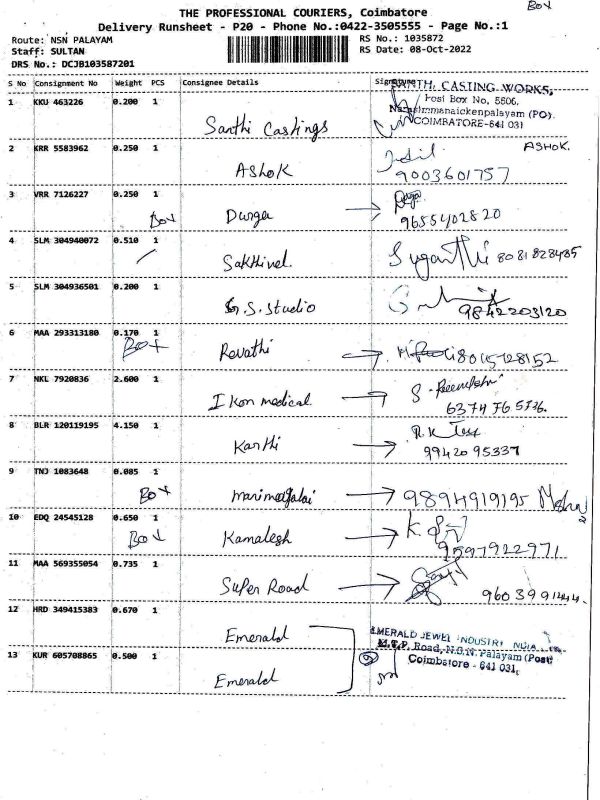 Box
THE PROFESSIONAL COURIERS, Coimbatore
Delivery Runsheet - P20 - Phone No.:0422-3505555 - Page No.:1
Route: NSN PALAYAM
RS No.: 1035872
Staff: SULTAN
RS Date: 08-Oct-2022
DRS No.: DCJB103587201
S No Consignment No Weight PCS Consignee Details Signature
SANTHI CASTING WORKS,
Post Box No, 5606,
Narasimmanaickenpalayam (PO).
COIMBATORE-641 031
1 KKU 463226 0.200 1 Santhi Castings
2 KRR 5583962 0.250 1 ASHOK 9003601757 ASHOK.
3 VRR 7126227 0.250 1 Box Durga → Durga 9655402820
4 SLM 304940072 0.510 1 Sakthivel. Suganthi 8081828485
5 SLM 304936501 0.200 1 G.S. Studio 9842203120
6 MAA 293313180 0.170 1 Box Revathi → 8015728152
7 NKL 7920836 2.600 1 I Kon medical. → 6374765736.
8 BLR 120119195 4.150 1 Karthi → 9942095337
9 TNJ 1083648 0.085 1 Box → 9894919195
10 EDQ 24545128 0.650 1 Box Kamalesh → 9597922971
11 MAA 569355054 0.735 1 Super Road → 9603991444.
12 HRD 349415383 0.670 1 Emerald
13 KUR 605708865 0.500 1 Emerald
EMERALD JEWEL INDUSTRY INDIA
M.T.P. Road, N.S.N. Palayam (Post)
Coimbatore - 641 031.